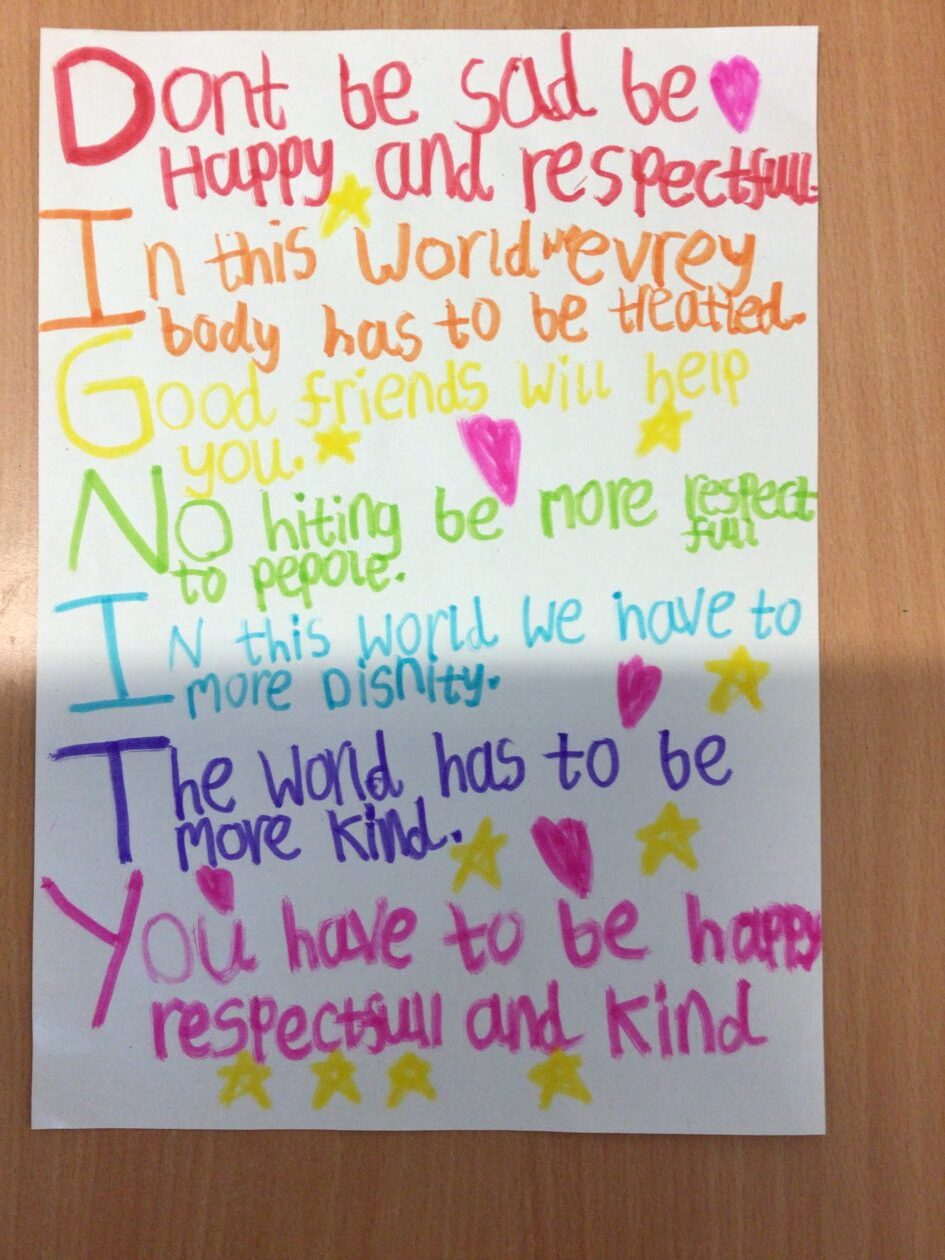 Dont be sad be
Happy and respectfull.
In this World we evrey
body has to be treatted.
Good friends will help
you.
No hiting be more respect
full
to pepole.
IN this world we have to
more Disnity.
The world has to be
more kind.
You have to be happy
respectfull and kind